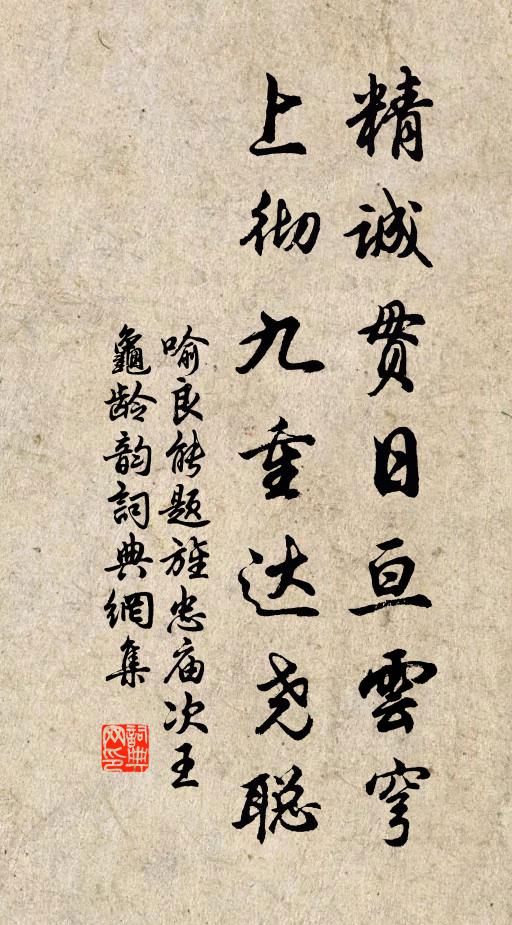 精诚贯日亘雲穹
上彻九重达尧聪
喻良能题旌忠庙次王
龜龄韵詞典網集
詞典網印